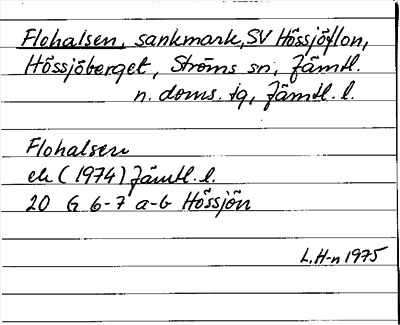 Flohalsen, sankmark, SV Hössjöflon,
Hössjöberget, Ströms sn, Jämtl.
n. doms. tg, Jämtl. l.
Flohalsen
ek (1974) Jämtl. l.
20 G 6-7 a-b Hössjön
L. H-n 1975